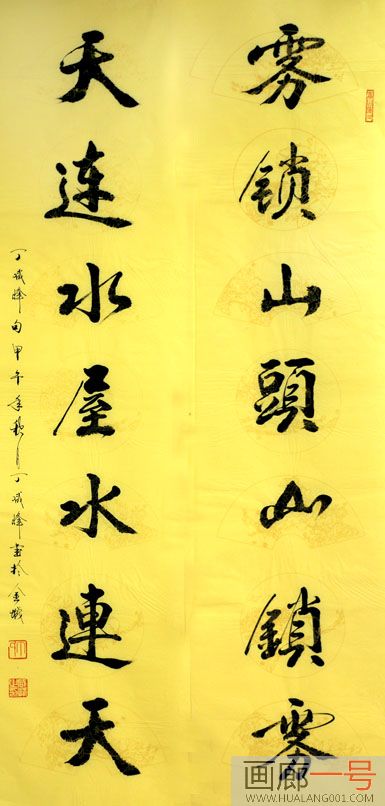 雾锁山頭山鎖雾
天连水屋水連天
丁成峰句甲午年秋月丁成峰書於金城
画廊一号
WWW.HUALANG001.COM